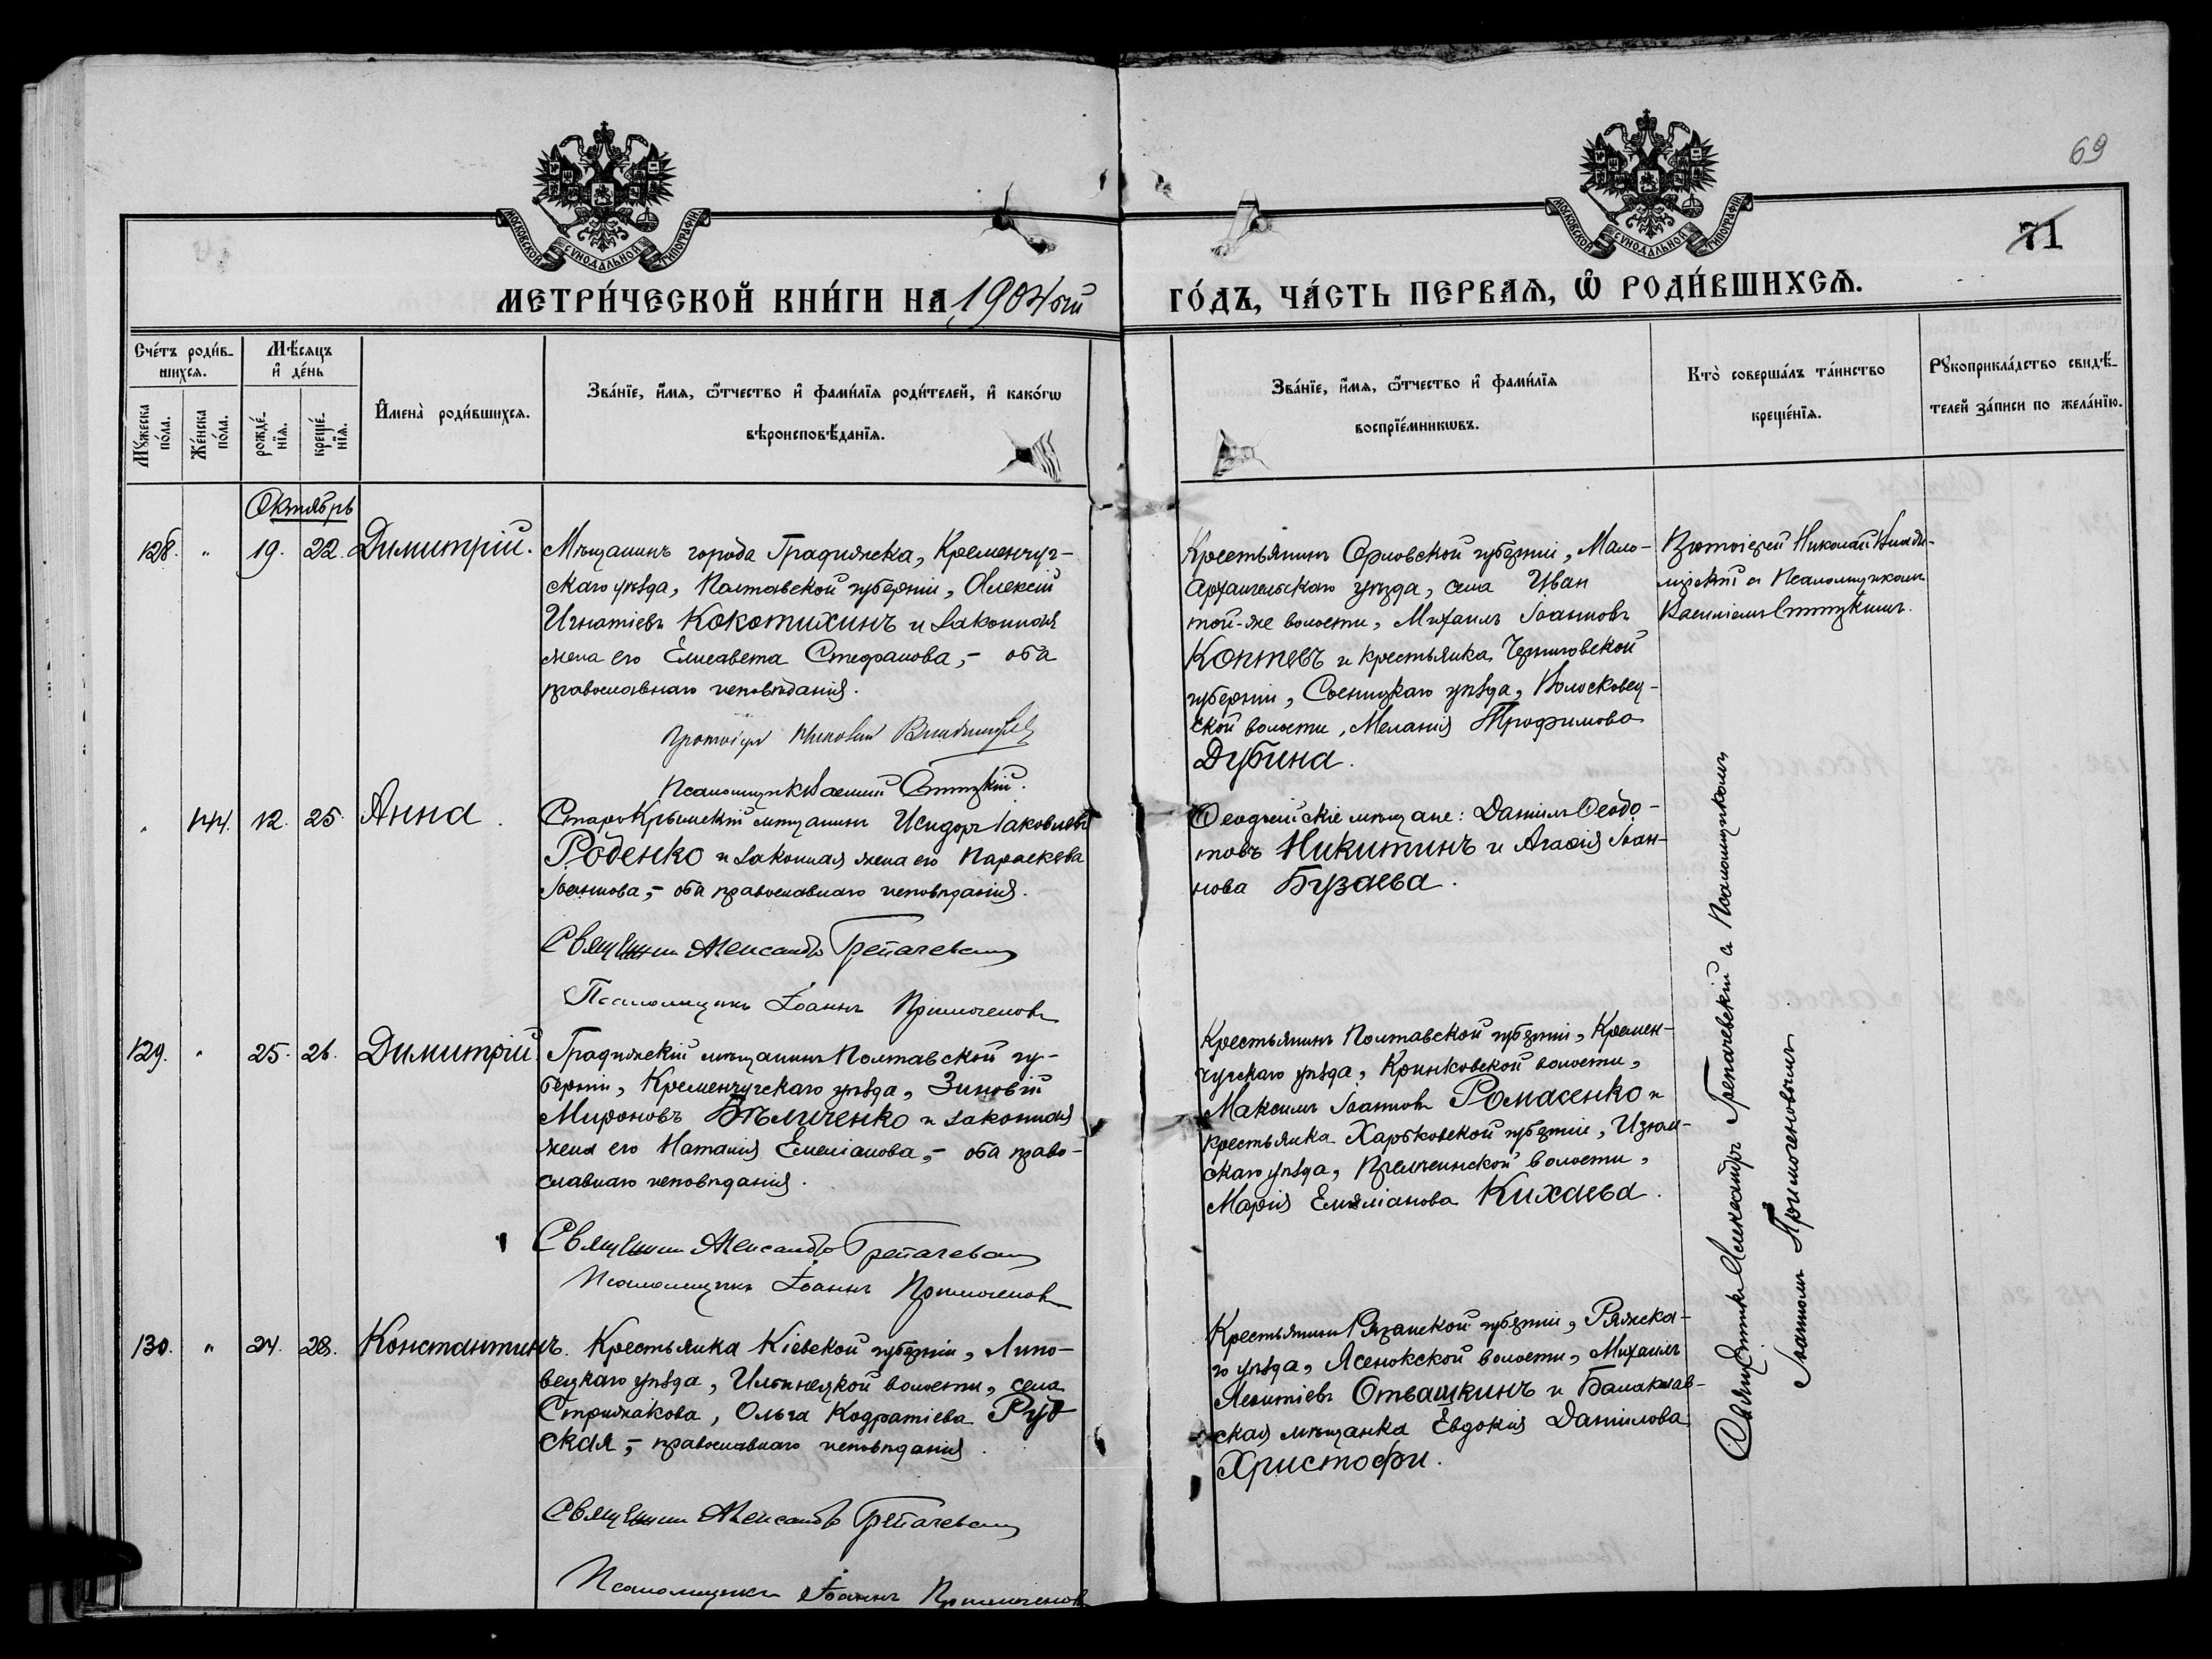 69
71
МОСКОВСКОЙ СѴНОДАЛЬНОЙ ТИПОГРАФІИ
МОСКОВСКОЙ СѴНОДАЛЬНОЙ ТИПОГРАФІИ
МЕТРИ́ЧЕСКОЙ КНИ́ГИ НА 1904ый ГО́ДЪ, ЧА́СТЬ ПЕРВАѦ, Ѡ РОДИ́ВШИХСѦ.
Сче́тъ роди́в-
шихсѧ.
Мꙋжеска
по́ла.
Же́нска
по́ла.
Мѣ́сѧцъ
и де́нь
рожде́-
нїѧ.
креще́-
нїѧ.
Имена̀ роди́вшихсѧ.
Зва́нїе, и́мѧ, ѻ҆́тчество и фами́лїѧ роди́телей, и како́гѡ
вѣроисповѣ́данїѧ.
Зва́нїе, и́мѧ, ѻ҆́тчество и фами́лїѧ
воспрїе́мникѡвъ.
Кто̀ соверша́лъ та́инство
креще́нїѧ.
Рꙋкоприкла́дство свидѣ́-
телей за́писи по жела́нїю.
Октябрь
128. " 19. 22. Димитрій.
Мѣщанинъ города Градижска, Кременчуг-
скаго уѣзда, Полтавской губерніи, Алексій
Игнатіевъ Кокотихинъ и законная
жена его Елисавета Стефанова, - оба
православнаго исповѣданія.
Протоіерей Николай
Псаломщикъ Василій
Крестьянинъ Орловской губерніи, Мало-
Архангельскаго уѣзда, села Иван
той-же волости, Михаилъ Іоанновъ
Коптевъ и крестьянка Черниговской
губерніи, Сосницкаго уѣзда, Волосковец-
ской волости, Меланія Трофимова
Дубина.
Протоіерей Николай
съ Псаломщикомъ
Василіемъ
" 144. 12. 25. Анна.
СтароКрымскій мѣщанинъ Исидоръ Іаковлевъ
Роденко и законная жена его Параскева
Іоаннова, - оба православнаго исповѣданія.
Священникъ Александръ Трепачевскій
Псаломщикъ Іоаннъ Примогеновъ
Ѳеодосійскіе мѣщане: Даніилъ Ѳеодо-
товъ Никитинъ и Агаѳія Іоан-
нова Бузаева.
129. " 25. 26. Димитрій.
Градижскій мѣщанинъ Полтавской гу-
берніи, Кременчугскаго уѣзда, Зиновій
Мироновъ Бѣличенко и законная
жена его Наталія Емеліанова, - оба право-
славнаго исповѣданія.
Священникъ Александръ Трепачевскій
Псаломщикъ Іоаннъ Примогеновъ
Крестьянинъ Полтавской губерніи, Кремен-
чугскаго уѣзда, Кринковской волости,
Максимъ Іоанновъ Ромасенко и
крестьянка Харьковской губерніи, Изюм-
скаго уѣзда, волости,
Марія Емеліанова Кихаева.
130. " 24. 28. Константинъ.
Крестьянка Кіевской губерніи, Липо-
вецкаго уѣзда, Ильинецкой волости, села
Стрижакова, Ольга Кодратіева Руд
ская, - православнаго исповѣданія.
Священникъ Александръ Трепачевскій
Псаломщикъ Іоаннъ Примогеновъ
Крестьянинъ Рязанской губерніи, Ряжска-
го уѣзда, Ясенокской волости, Михаилъ
Леонтіевъ Отвашкинъ и Балаклав-
ская мѣщанка Евдокія Даніилова
Христофи.
Священникъ Александръ Трепачевскій съ Псаломщикомъ
Іоанномъ Примогеновымъ.